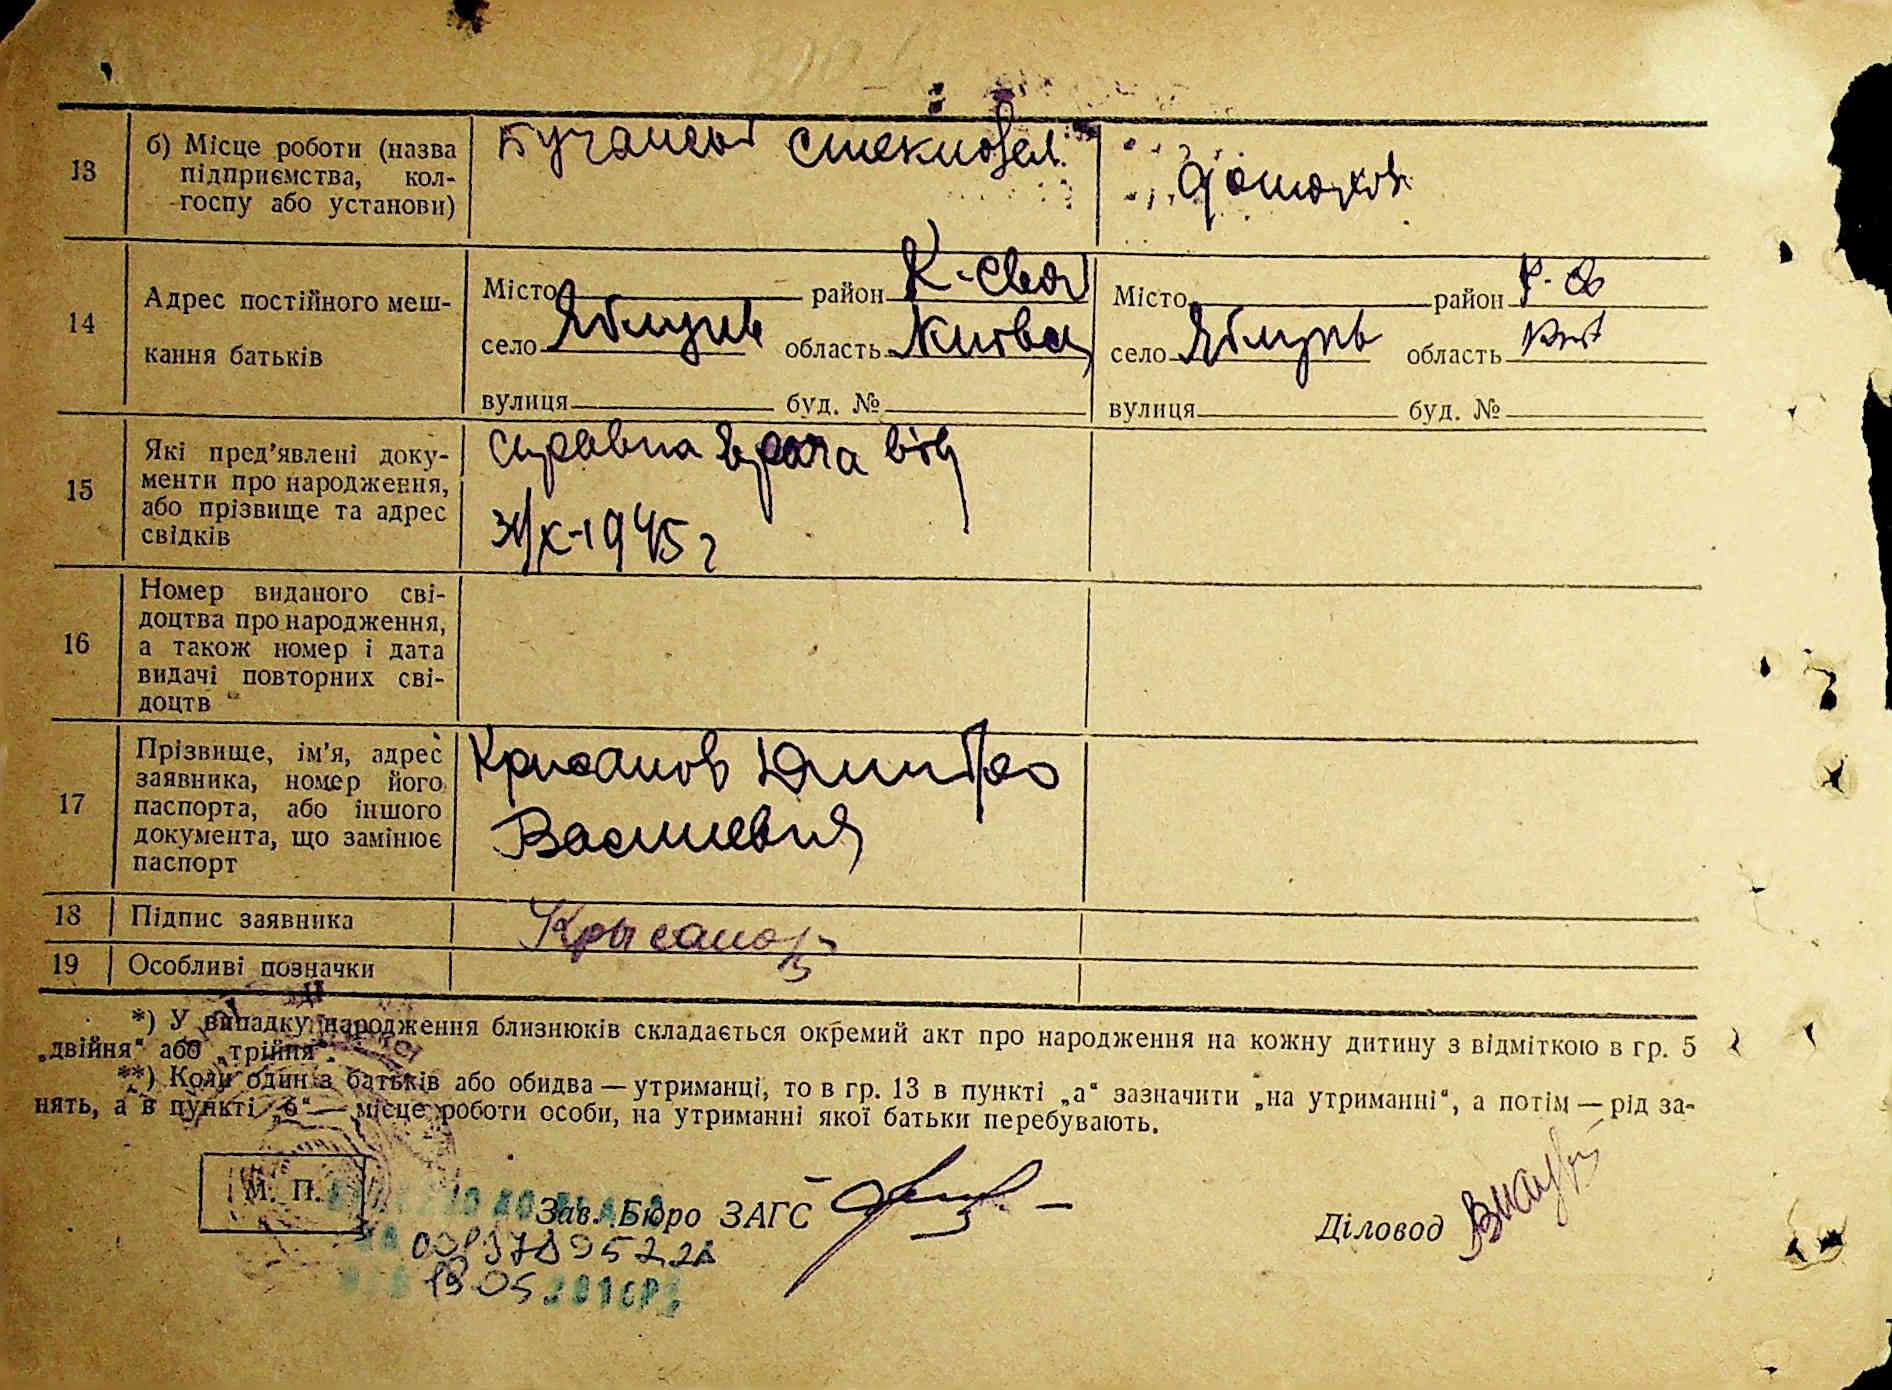 13
б) Місце роботи (назва
підприємства, кол-
госпу або установи)
14
Адрес постійного меш-
кання батьків
Місто район К-Свят
село Яблунь область Київська
вулиця буд. №
Місто район К-Св
село Яблунь область Київ
вулиця буд. №
15
Які пред'явлені доку-
менти про народження,
або прізвище та адрес
свідків
справка врача від
X-1945 г
16
Номер виданого сві-
доцтва про народження,
а також номер і дата
видачі повторних сві-
доцтв
17
Прізвище, ім'я, адрес
заявника, номер його
паспорта, або іншого
документа, що замінює
паспорт
Крисанов Дмитро
Василевич
18 Підпис заявника Крысанов
19 Особливі позначки
*) У випадку народження близнюків складається окремий акт про народження на кожну дитину з відміткою в гр. 5
„двійня“ або „трійня“.
**) Коли один з батьків або обидва — утриманці, то в гр. 13 в пункті „а“ зазначити „на утриманні“, а потім — рід за-
нять, а в пункті „б“ — місце роботи особи, на утриманні якої батьки перебувають.
М. П.
Зав. Бюро ЗАГС
Діловод
19 05 2010